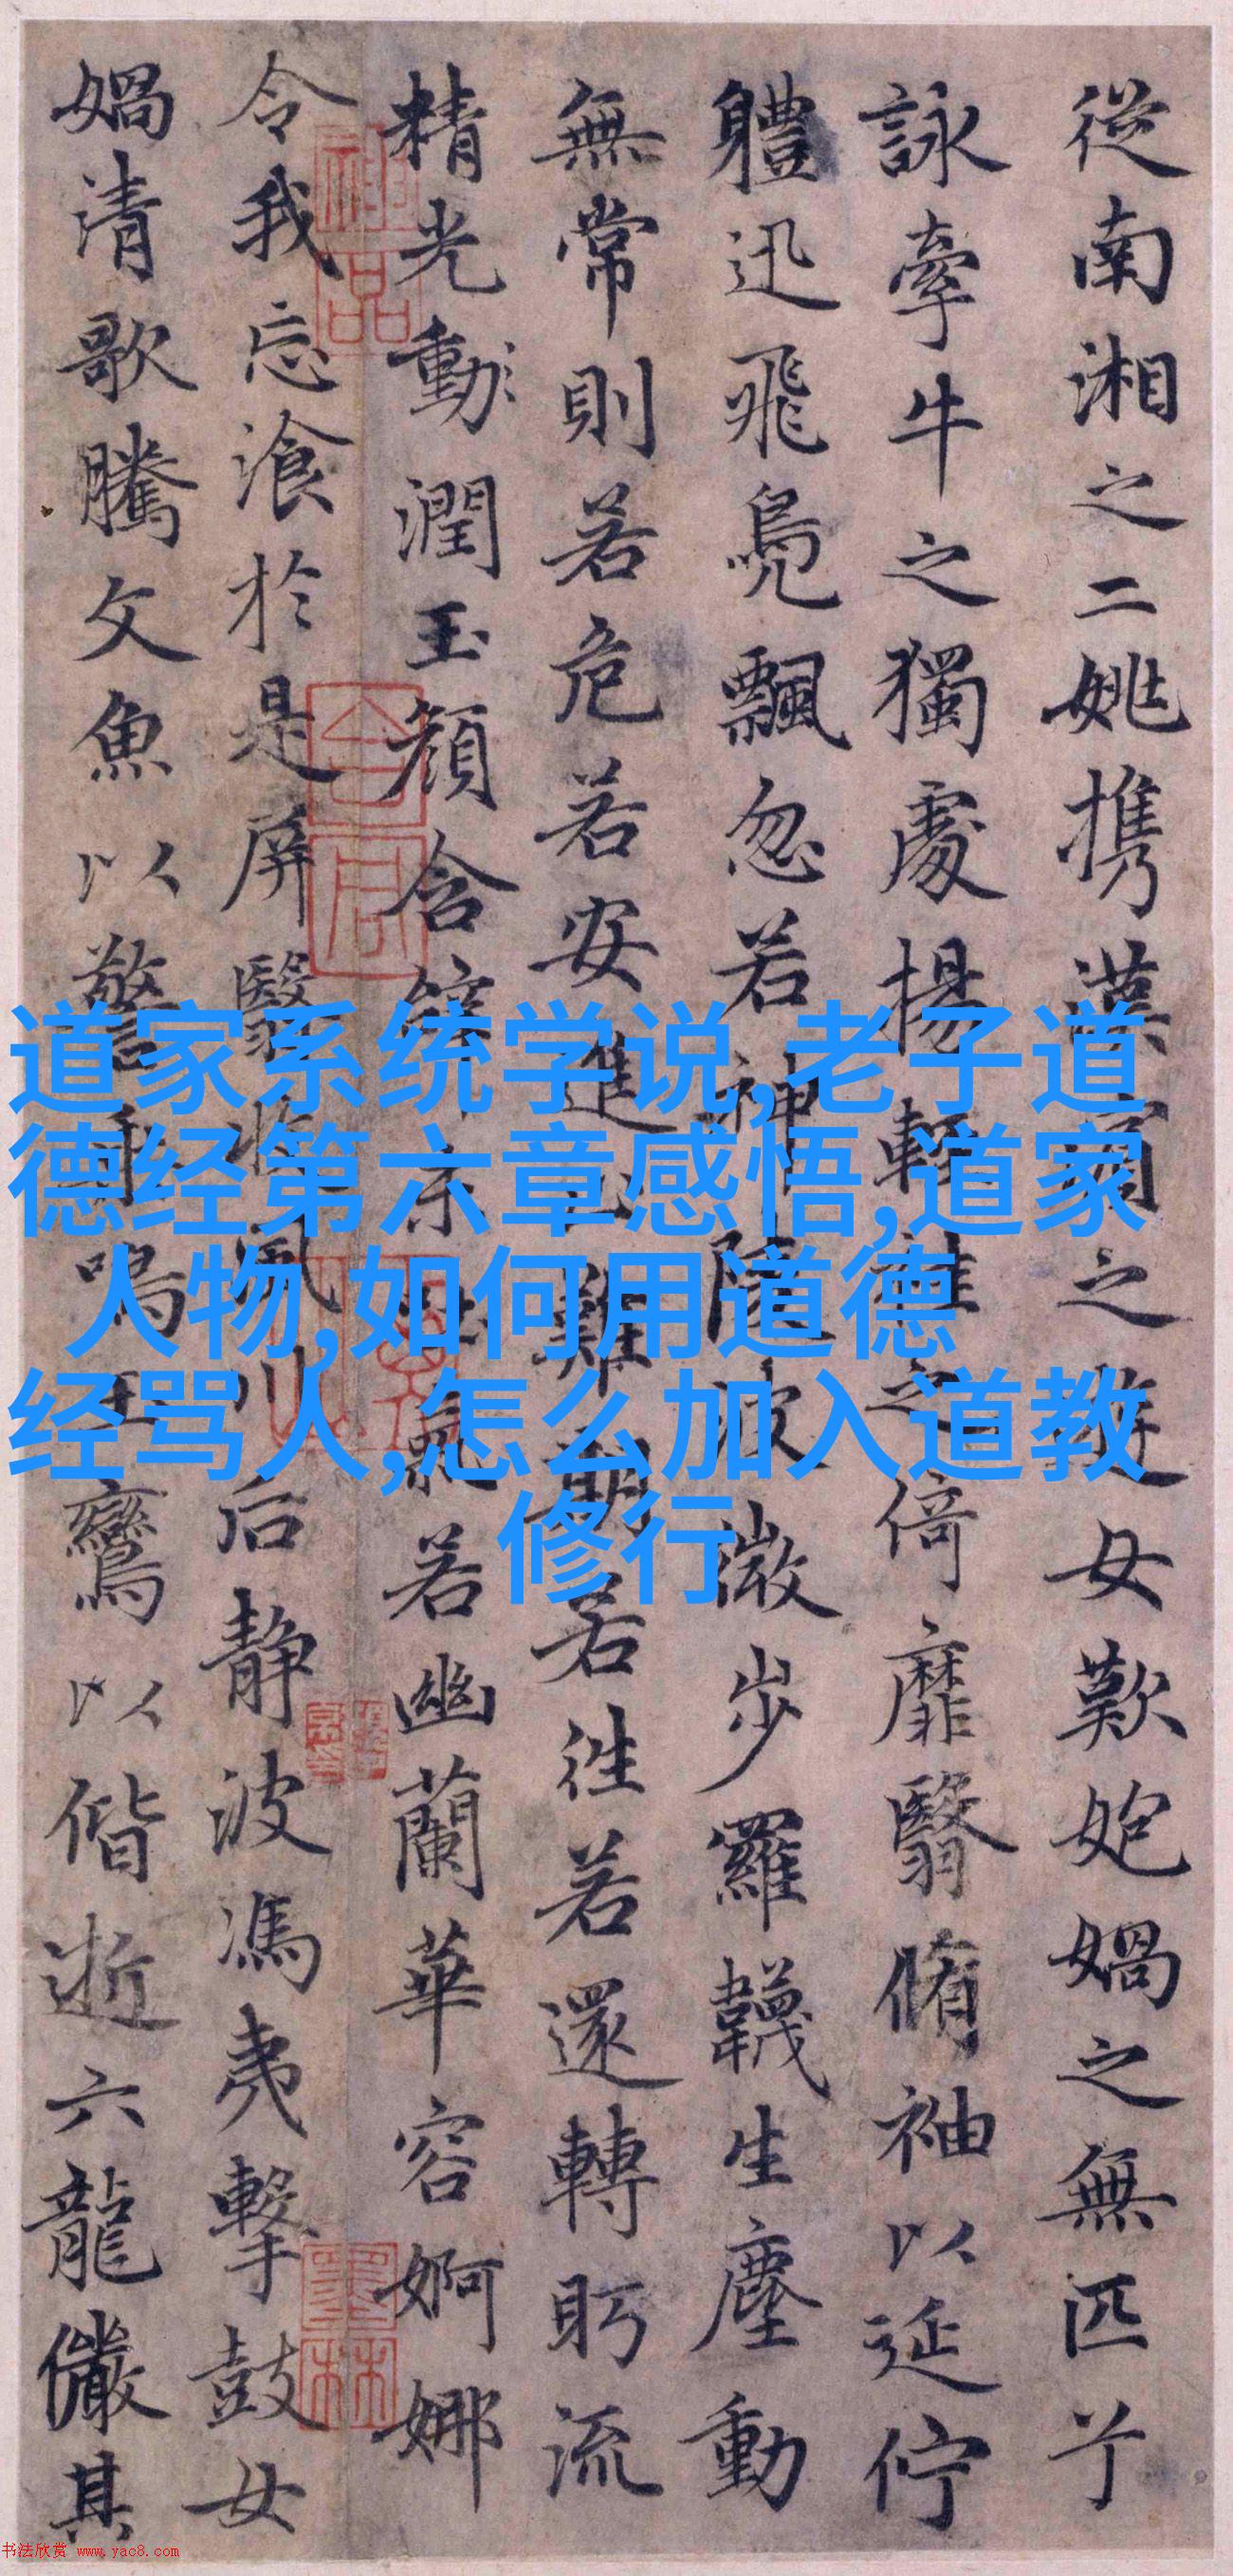 從南湘之二姚携漢濱之遊女歎匏媧之無匹兮
詠牽牛之獨處揚輕袿之倚靡翳脩袖以延佇
軆迅飛鳧飄忽若神陵波微步羅韈生塵動
無常則若危若安進止難期若往若還轉眄流
精光動潤玉顏含辭未吐氣若幽蘭華容婀娜
令我忘飡於是屏翳收風川后静波馮夷擊鼓女
媧清歌騰文魚以警乘鳴玉鸞以偕逝六龍儼其
道家系统学说,老子道
德经第六章感悟,道家
人物,如何用道德
经骂人,怎么加入道教
修行
神品
墨林
书法欣赏 www.yac8.com